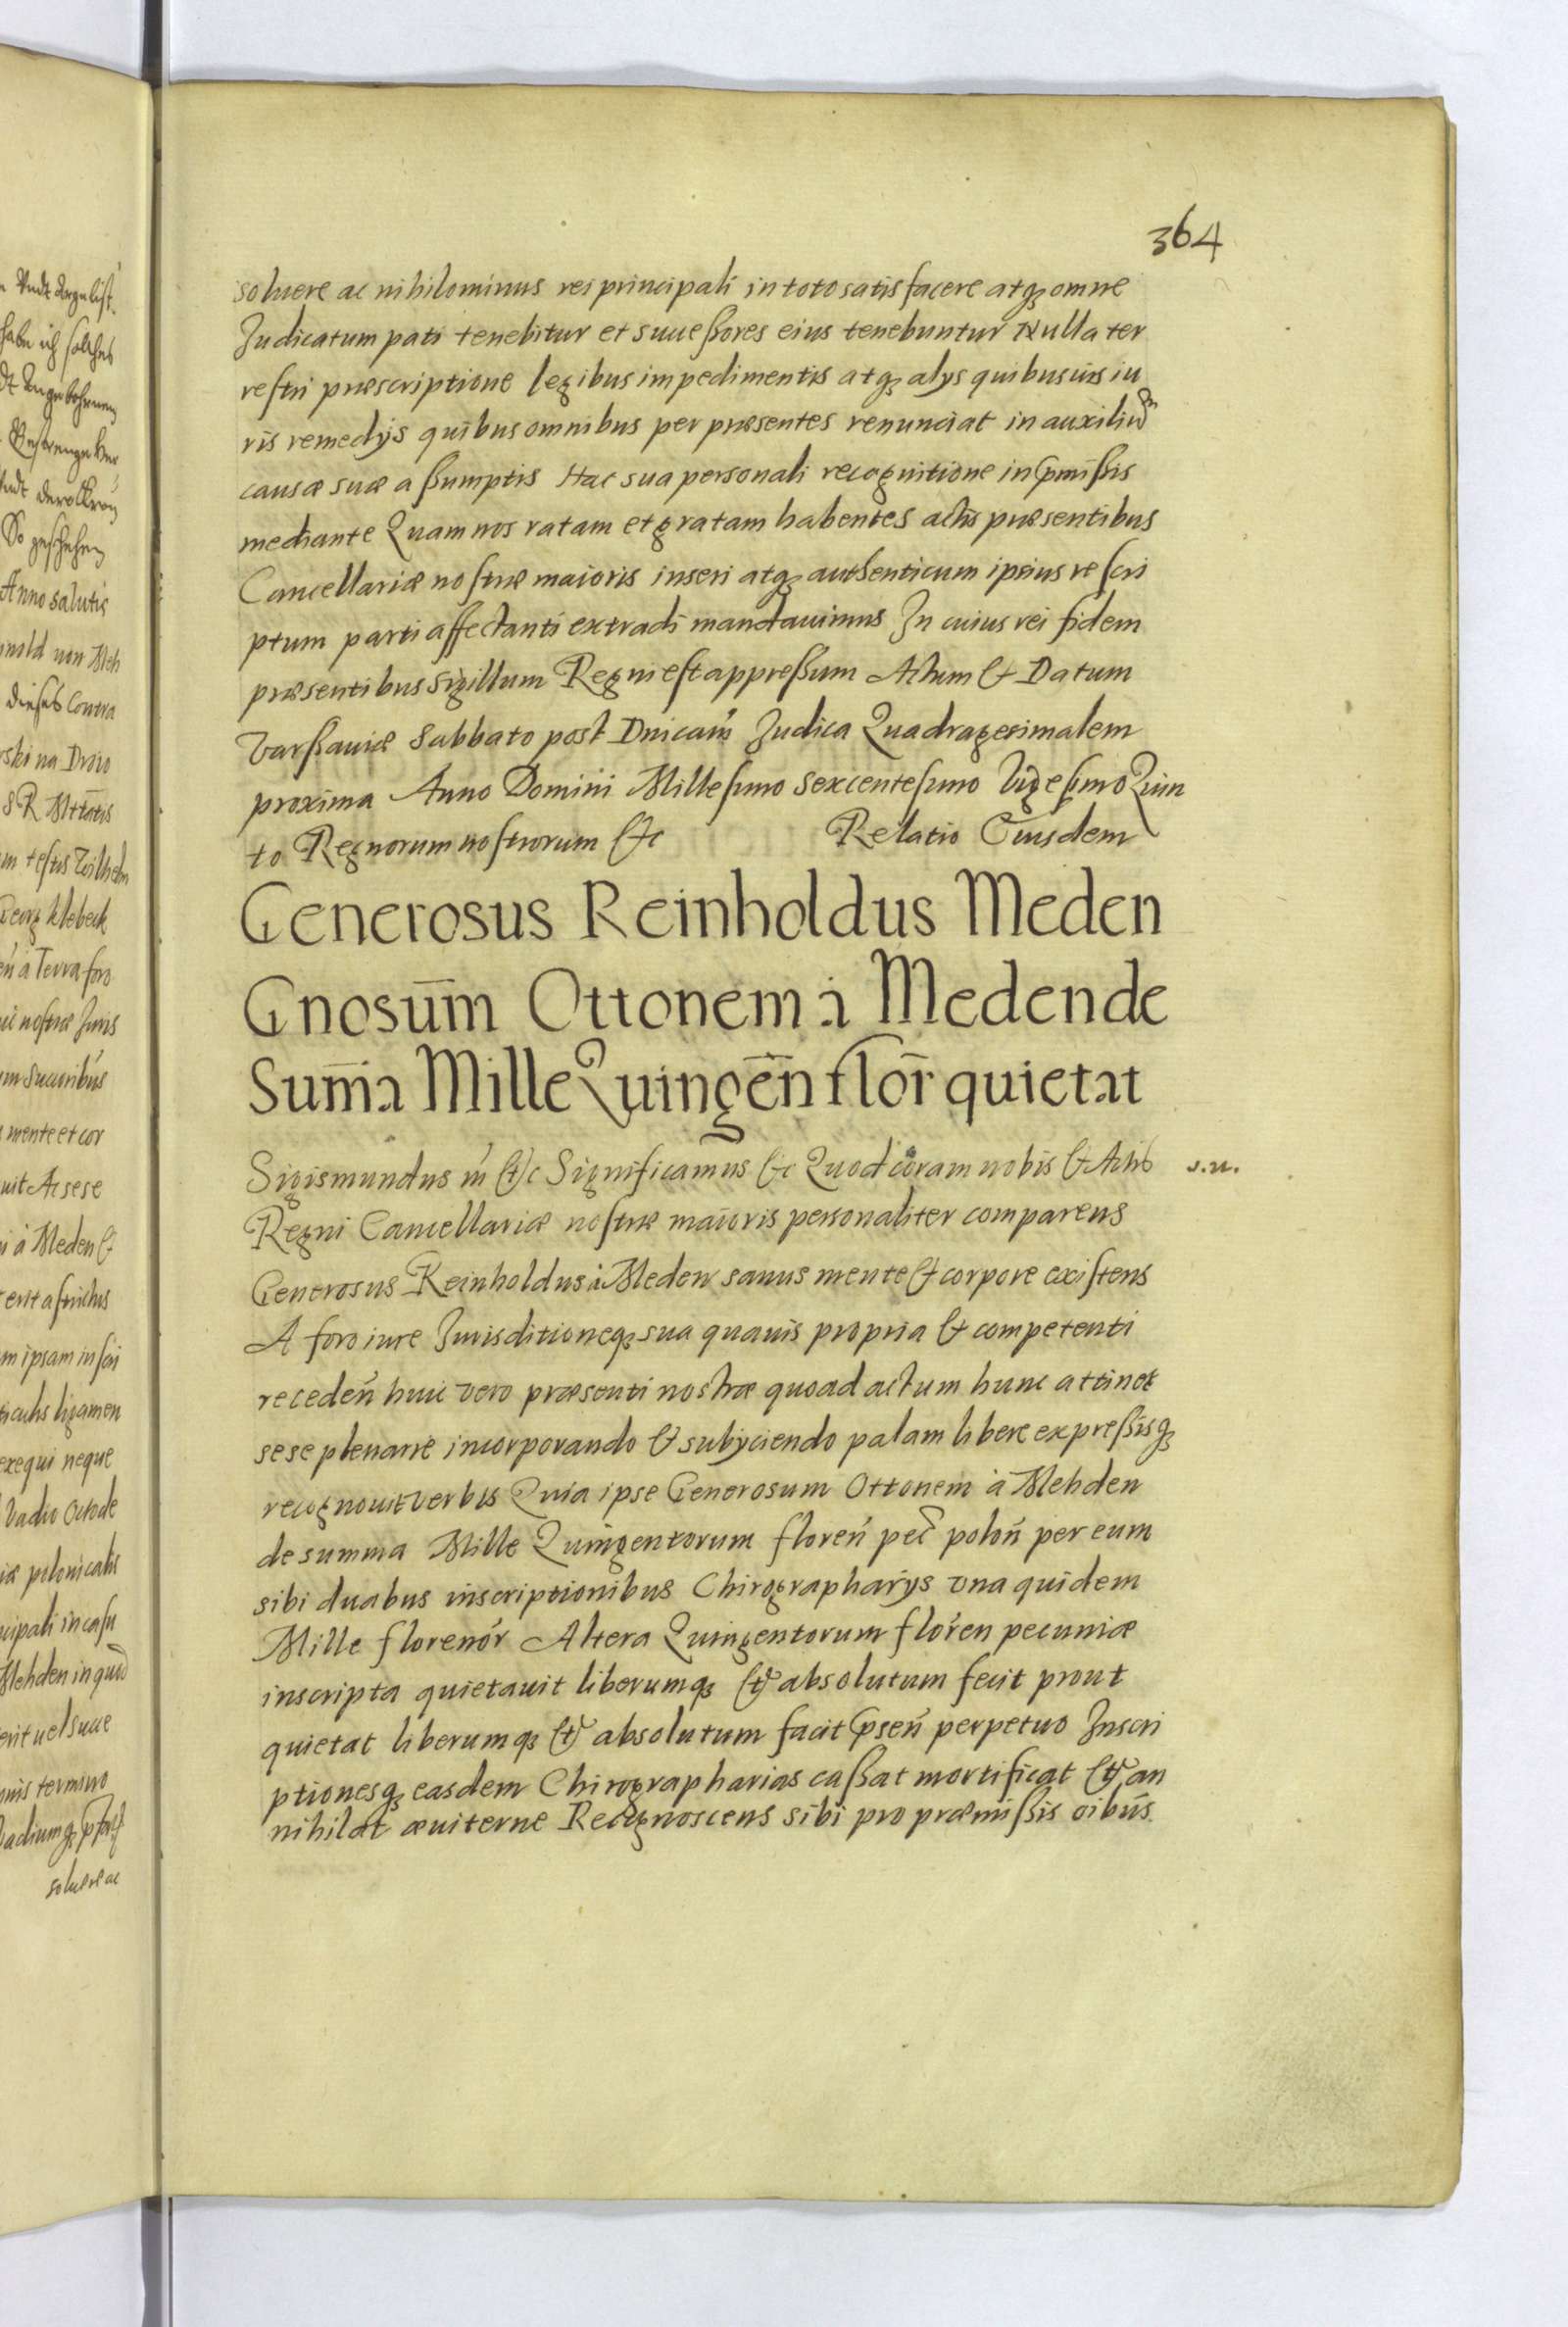 364
soluere ac nihilominus rei principali in toto satisfacere atq3 omne
Judicatum pati tenebitur et successores eius tenebuntur Nulla ter
restri præscriptione legibus impedimentis atq3 alys quibusuis iu
ris remedys quibus omnibus per præsentes renunciat in auxiliũ
causæ suæ assumptis Hac sua personali recognitione in pmissis
mediante Quam nos ratam et gratam habentes actis præsentibus
Cancellariæ nostræ maioris inseri atq3 authenticum ipsius rescri
ptum parti affectanti extradi mandauimus In cuius rei fidem
præsentibus Sigillum Regni est appressum Actum & Datum
Varssauiæ Sabbato post Dnicam̃ Judica Quadragesimalem
proxima Anno Domini Millesimo Sexcentesimo Vigesimo Quin
to Regnorum nostrorum &c Relatio Eiusdem
Generosus Reinholdus Meden
Gnosum̃ Ottonem à Meden de
Sum̃a Mille Quingen̄ flor̄ quietat
Sigismundus III &c Significamus &c Quod coram nobis & Actis s.u.
Regni Cancellariæ nostræ maioris personaliter comparens
Generosus Reinholdus à Meden sanus mente & corpore existens
A foro iure Jurisditioneq3 sua quauis propria & competenti
receden̄ huic vero præsenti nostræ quoad actum hunc attinet
sese plenarie incorporando & subyciendo palam libere expressisq3
recognouit verbis Quia ipse Generosum Ottonem à Mehden
de summa Mille Quingentorum floren̄ pec̄ polon̄ per eum
sibi duabus inscriptionibus Chirographarys vna quidem
Mille florenor̄ Altera Quingentorum flor̄en pecuniæ
inscripta quietauit liberumq3 & absolutum fecit prout
quietat liberumq3 & absolutum facit psen̄ perpetuo Inscri
ptionesq3 easdem Chirographarias cassat mortificat & an
nihilat æuiterne Recognoscens sibi pro præmissis oibus̄